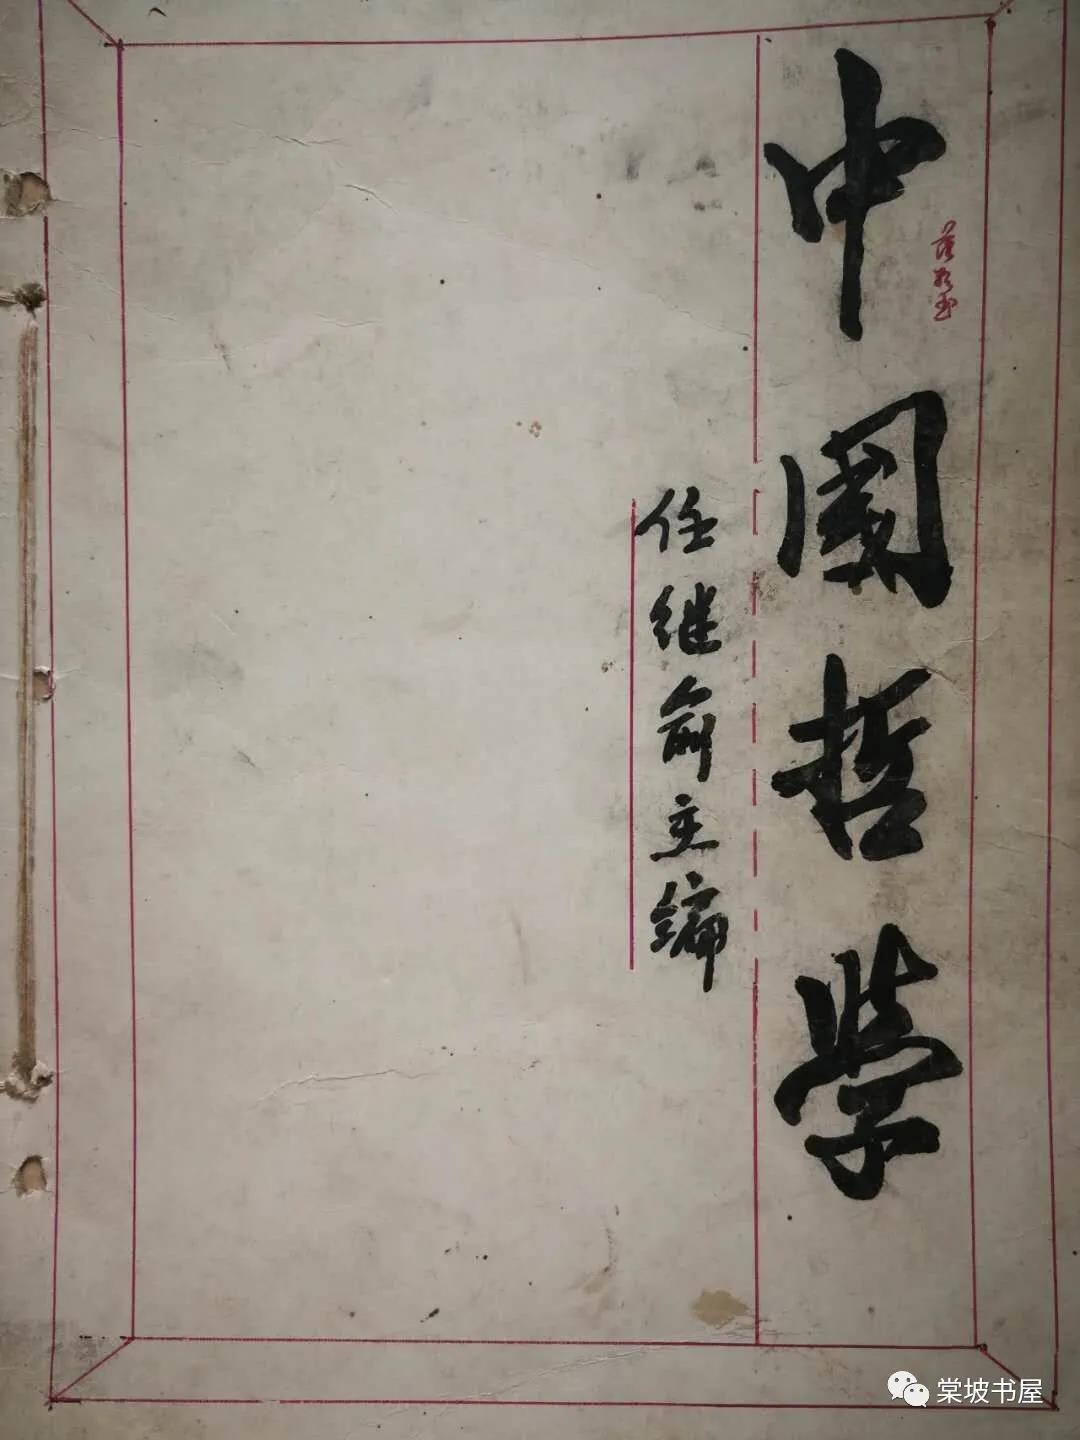 中國哲學
任继俞主编
棠坡书屋